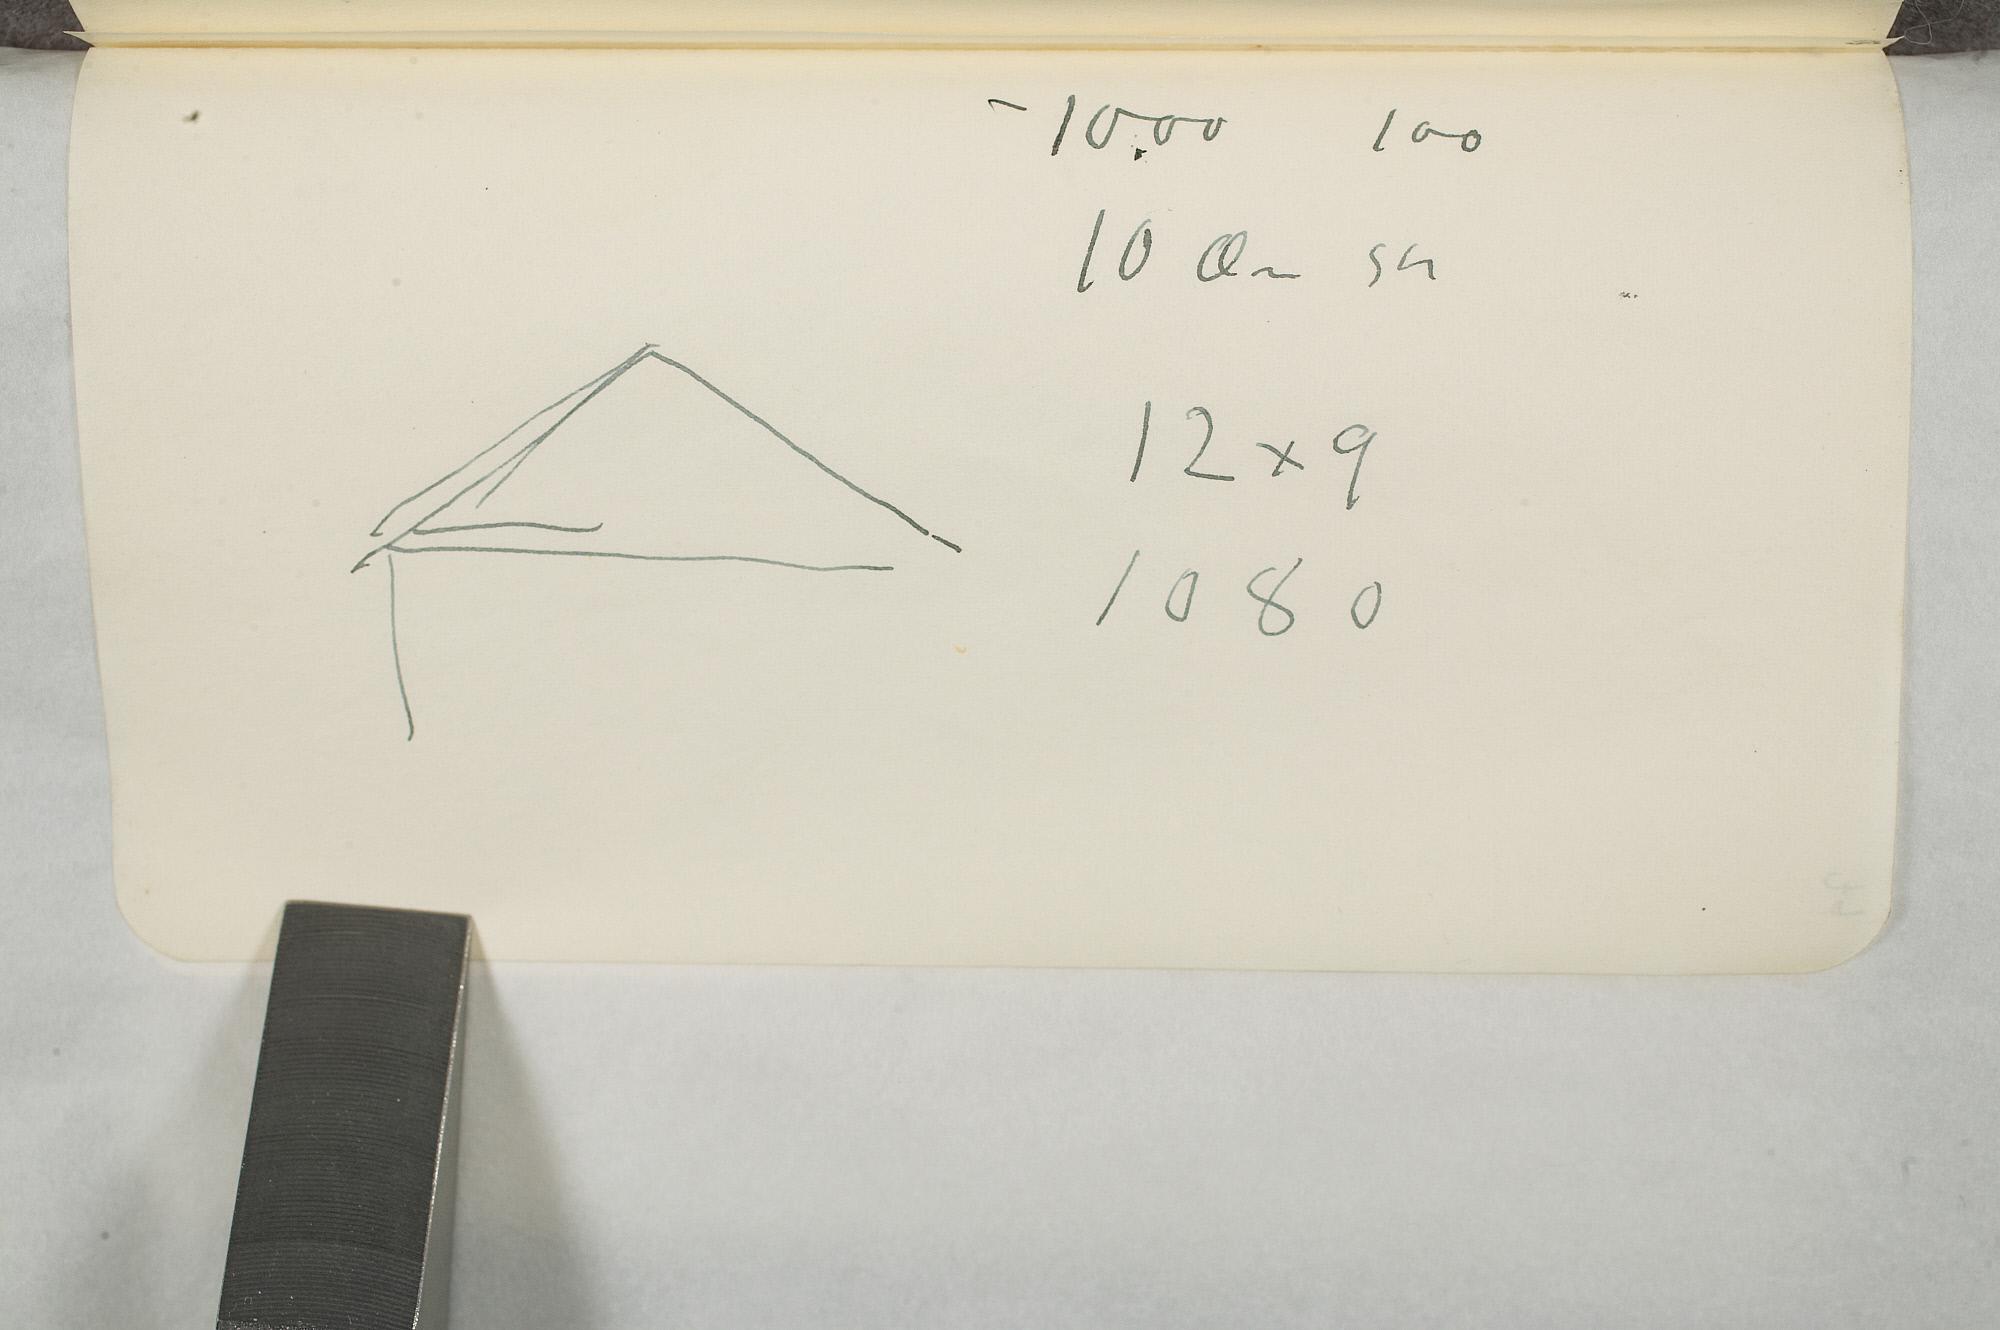 -1000 100
10
12 x 9
1080